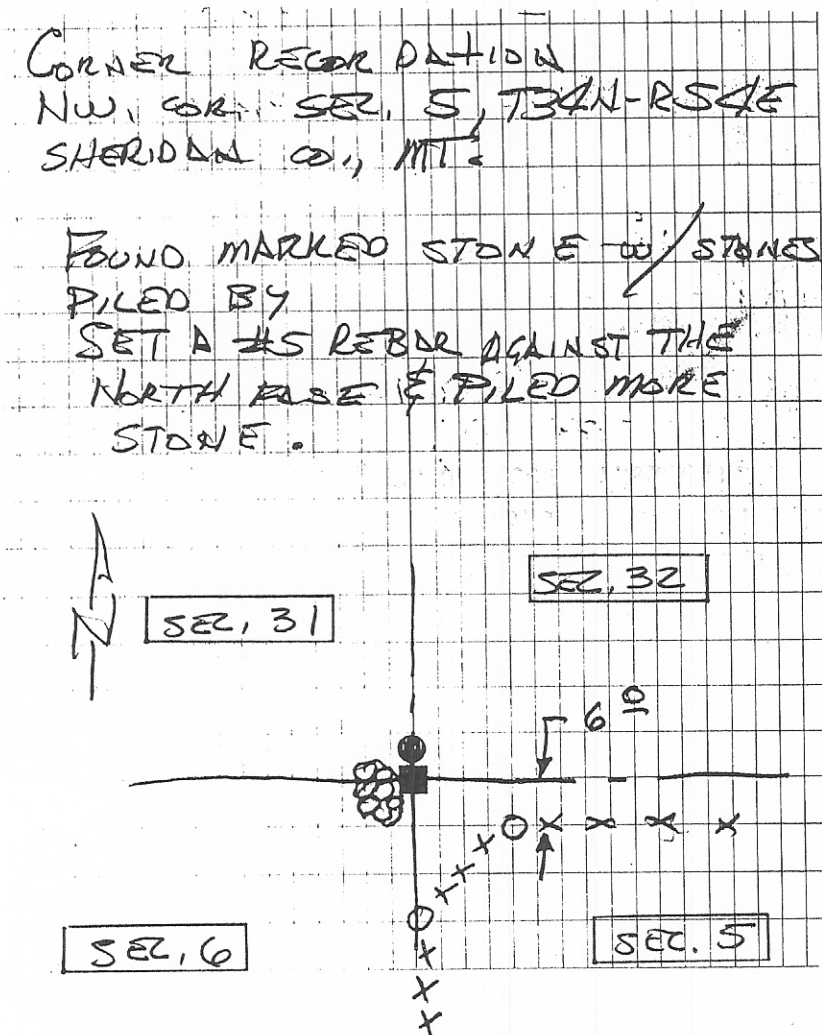 CORNER RECORDATION
NW. COR. SEC. 5, T34N-R54E
SHERIDAN CO., MT.
FOUND MARKED STONE W/ STONES
PILED BY
SET A #5 REBAR AGAINST THE
NORTH FASE & PILED MORE
STONE.
SEC. 32
SEC, 31
N
6 0
SEC, 6
SEC. 5